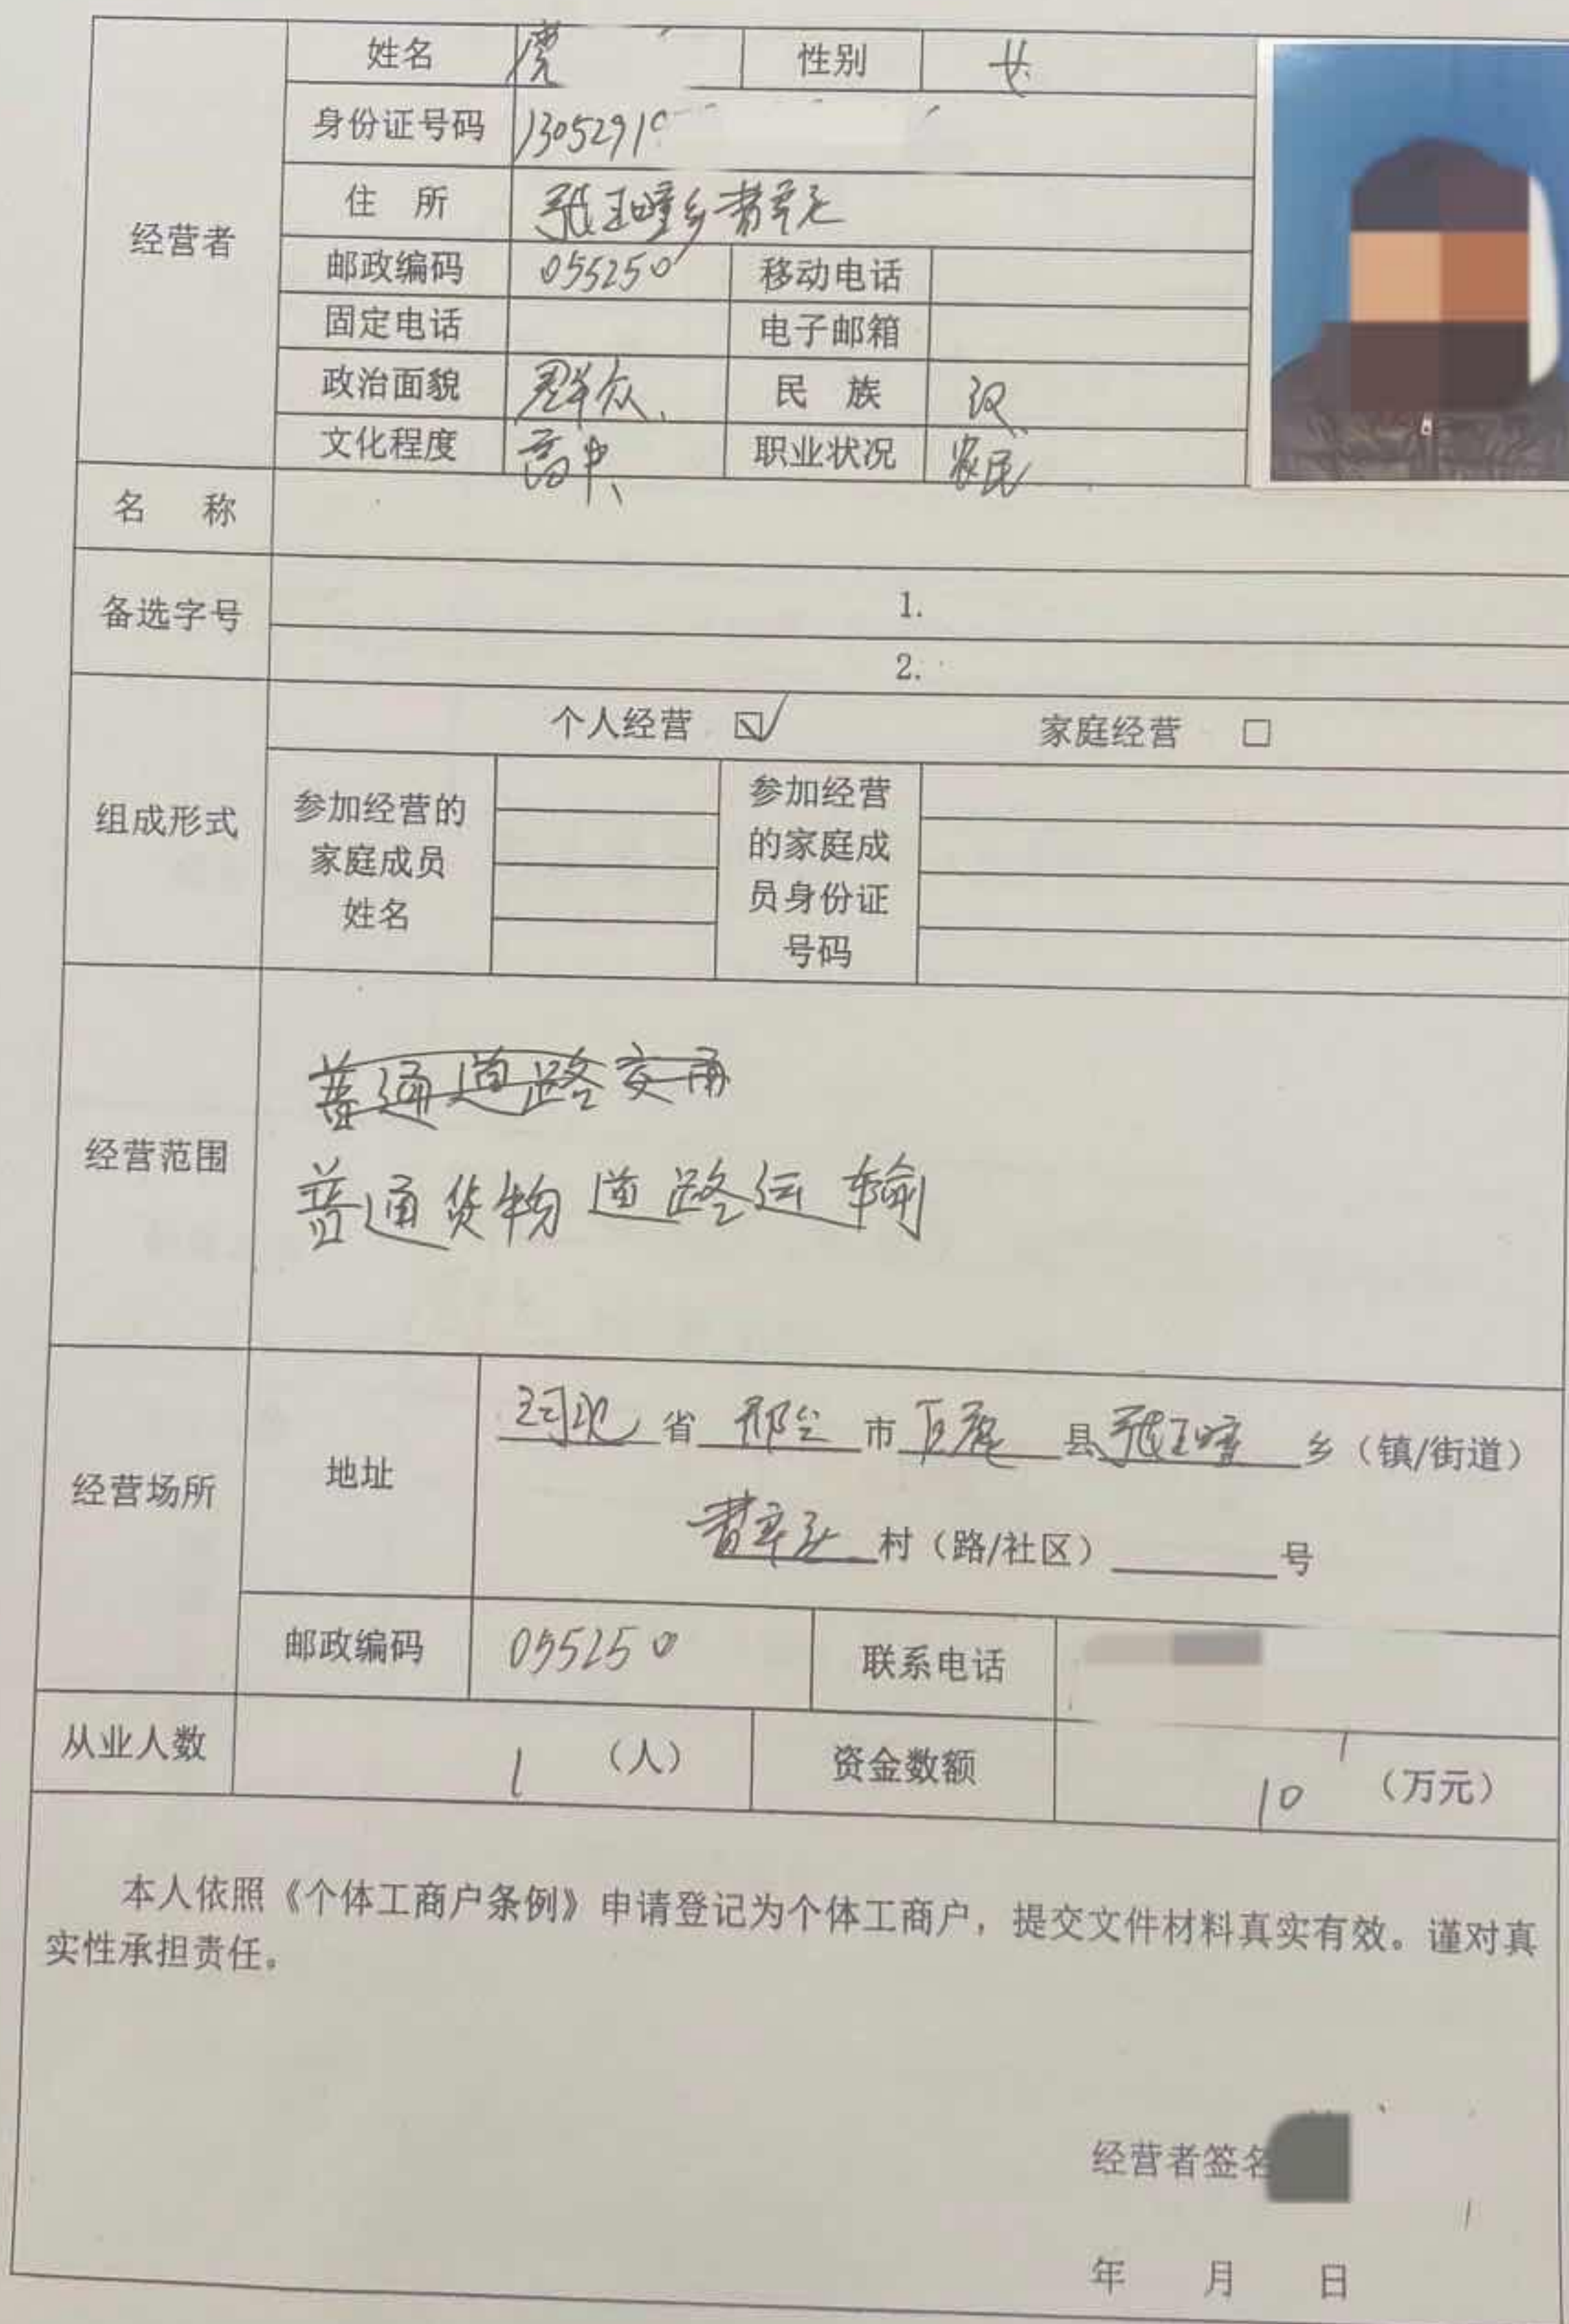 姓名 性别 女
身份证号码 1305291
住 所 张王疃乡
邮政编码 055250 移动电话
经营者
固定电话 电子邮箱
政治面貌 群众 民 族 汉
文化程度 高中 职业状况 农民
名 称
备选字号
1.
2.
个人经营 ☑ 家庭经营 □
组成形式
参加经营的
家庭成员
姓名
参加经营
的家庭成
员身份证
号码
普通道路交通
经营范围
普通货物道路运输
经营场所
地址
河北 省 邢台 市 巨鹿 县 张王疃 乡（镇/街道）
村（路/社区） 号
邮政编码 055250 联系电话
从业人数 1 （人） 资金数额 10 （万元）
本人依照《个体工商户条例》申请登记为个体工商户，提交文件材料真实有效。谨对真
实性承担责任。
经营者签名
年 月 日